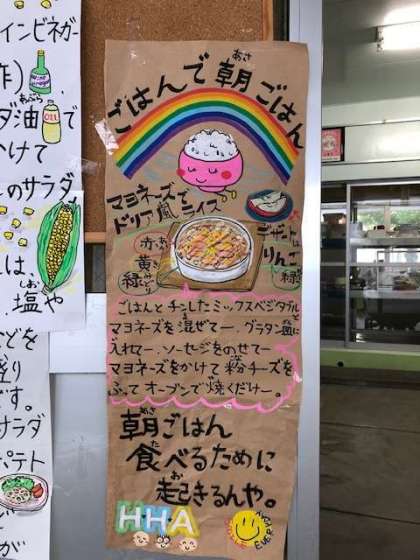 インビネガー
酢)
ダ油
あぶら
OIL
かけて
のサラダ
は、
しお
塩や
どを
盛り
です。
サラダ
ポテト
が
ごはんで朝ごはん
あさ
マヨネーズで
ドリア風ライス。
赤
あか
黄
き
緑
みどり
デザートは
りんご
緑
ごはんとチンしたミックスベジタブルと
マヨネーズを混ぜてー、グラタン皿に
入れてー、ソーセージをのせてー
マヨネーズをかけて粉チーズを
ふってオーブンで焼くだけー。
あさ
朝ごはん
た
食べるために
お
起きるんや。
HHA